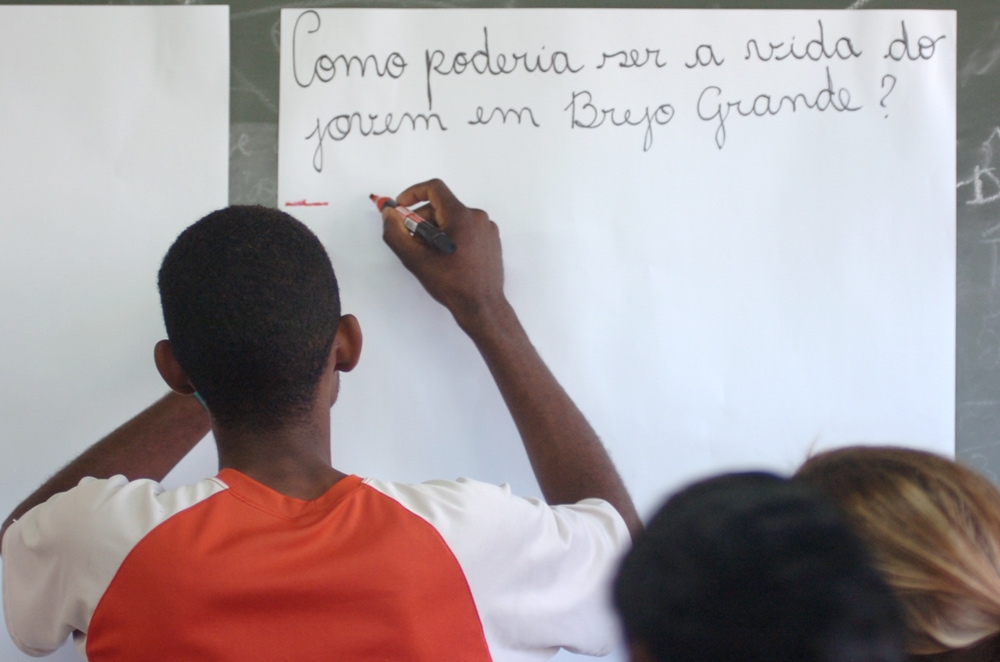 Como poderia ser a vida do
jovem em Brejo Grande?